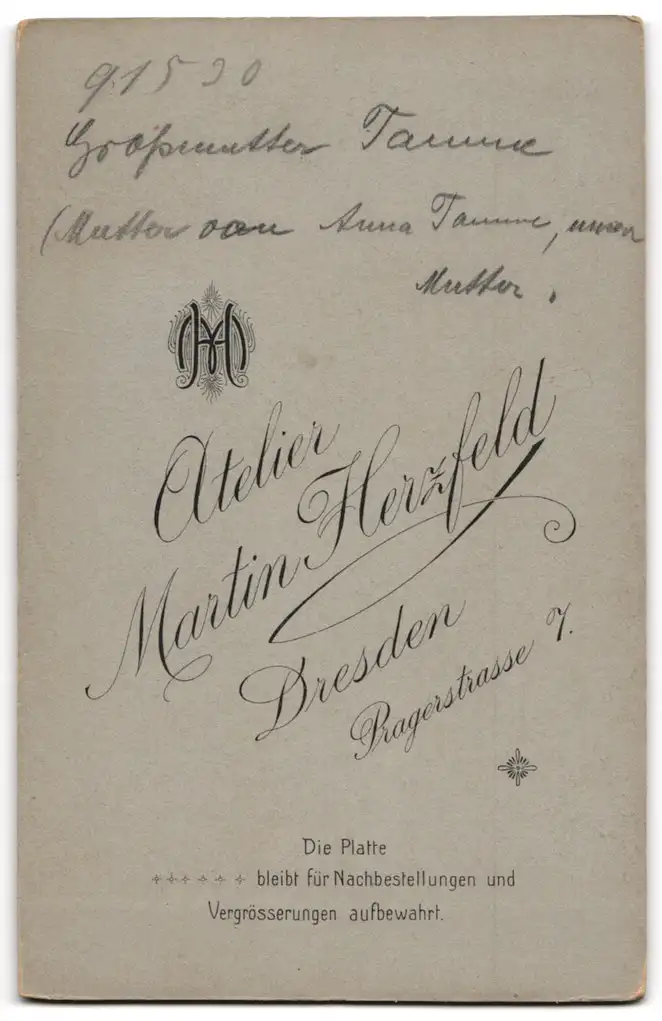 91530
Großmutter Tamme
(Mutter von Anna Tamme, unser
Mutter.
MH
Atelier
Martin Herzfeld
Dresden
Pragerstrasse 7.
Die Platte
bleibt für Nachbestellungen und
Vergrösserungen aufbewahrt.